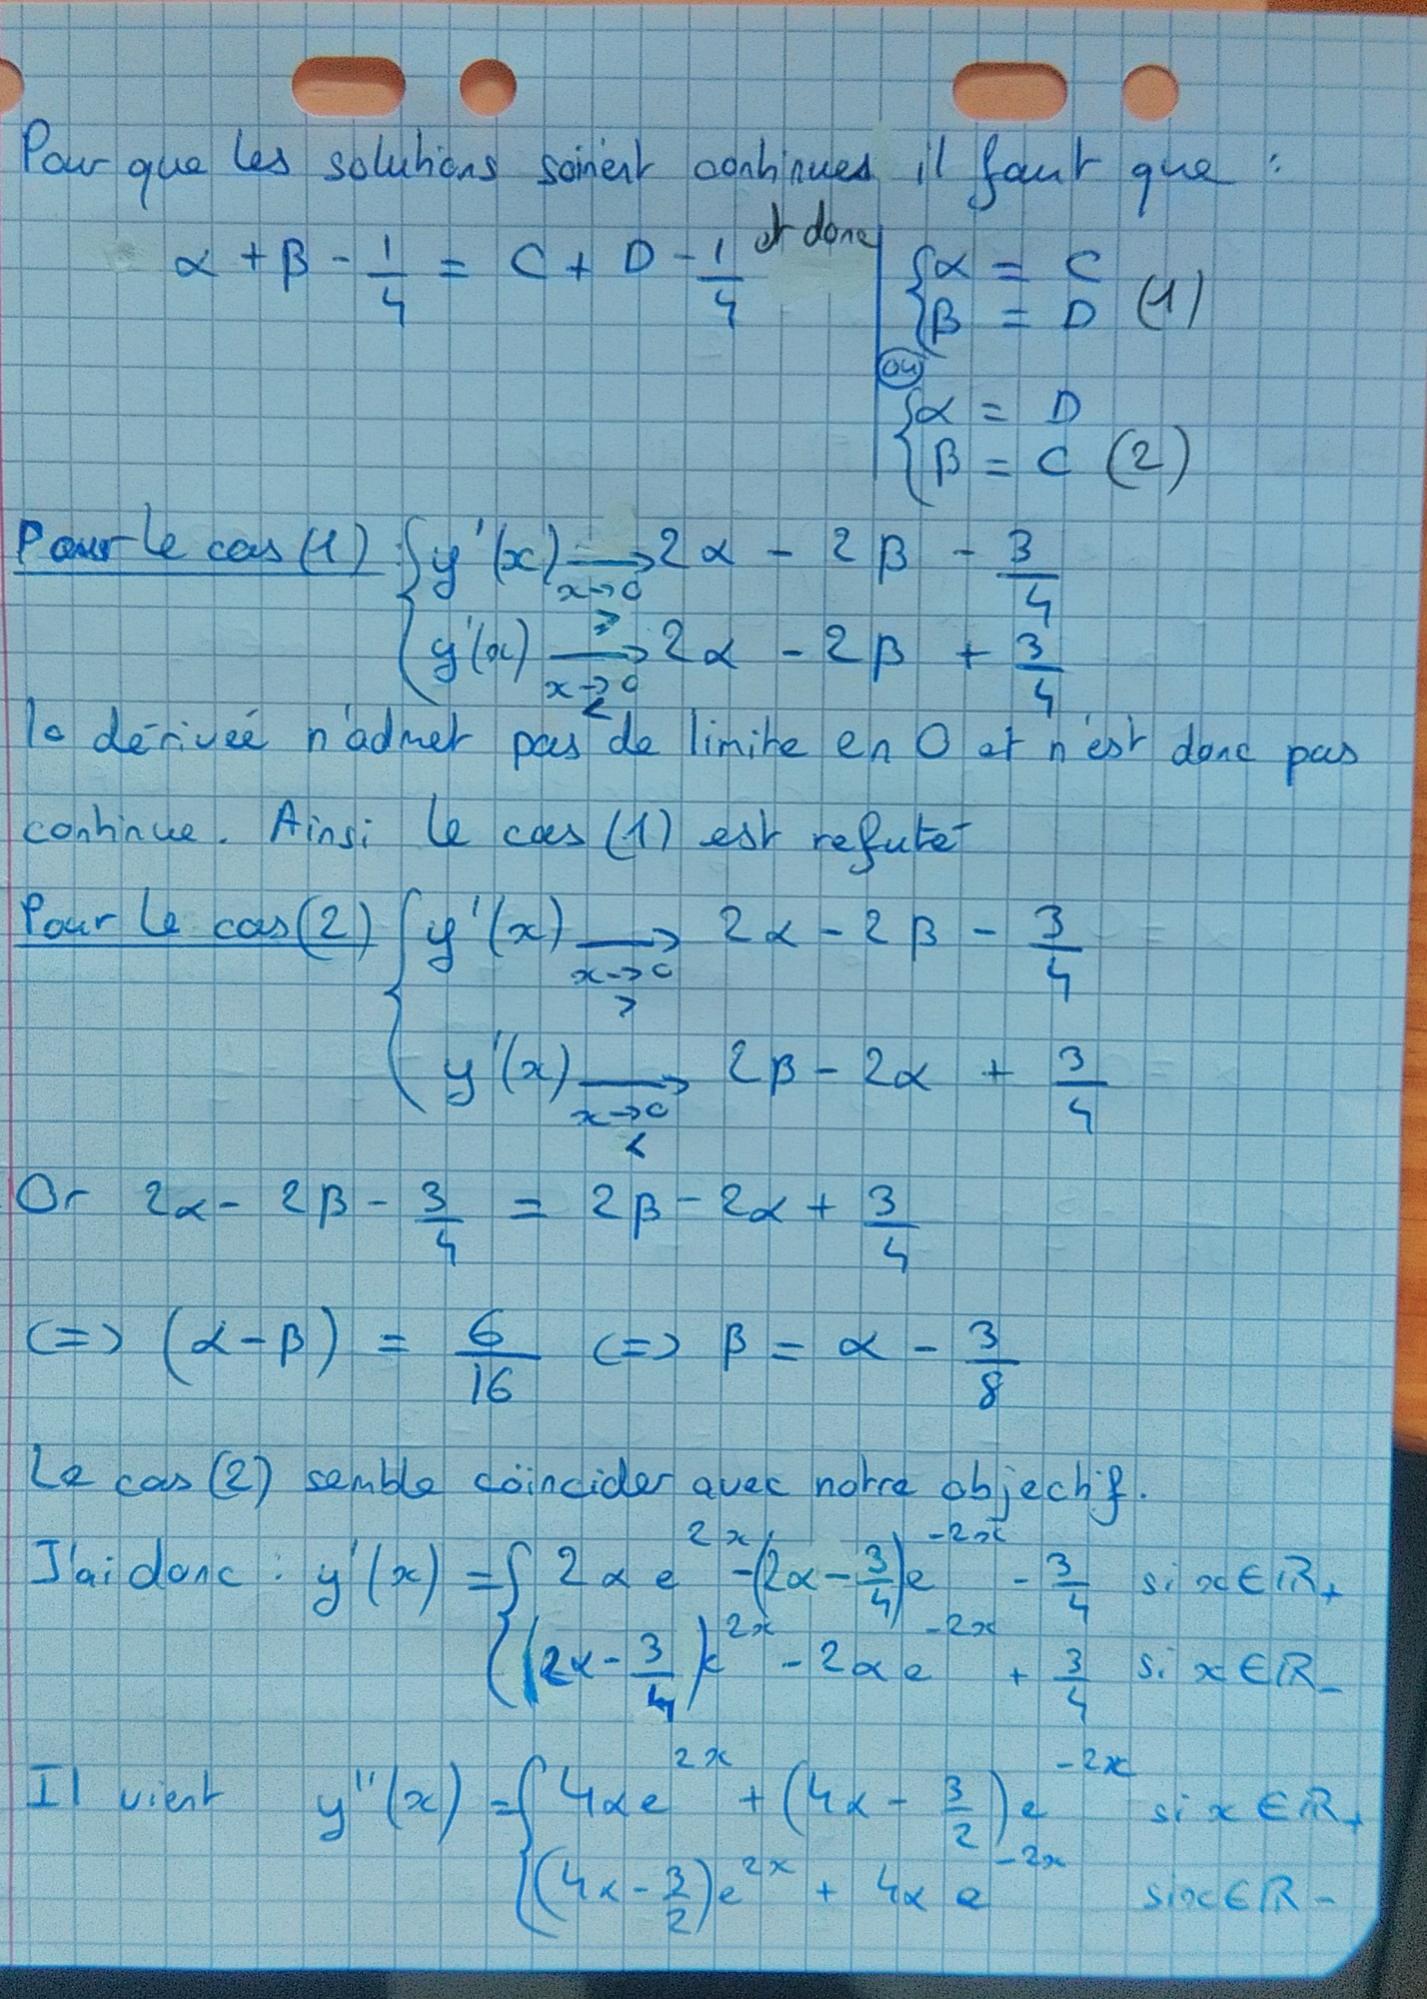 Pour que les solutions soinent continues il faut que :
α + β - 1/4 = C + D - 1/4 et donc { α = C
{ β = D (1)
ou
{ α = D
{ β = C (2)
Pour le cas (1) : { y'(x) ⟶ 2α - 2β - 3/4
x→0
>
{ y'(x) ⟶ 2α - 2β + 3/4
x→0
<
la dérivée n'admet pas de limite en 0 et n'est donc pas
continue. Ainsi le cas (1) est refuté
Pour le cas (2) { y'(x) ⟶ 2α - 2β - 3/4
x→0
>
{ y'(x) ⟶ 2β - 2α + 3/4
x→0
<
Or 2α - 2β - 3/4 = 2β - 2α + 3/4
(=> (α - β) = 6/16 (=> β = α - 3/8
Le cas (2) semble coïncider avec notre objectif.
J'ai donc : y'(x) = { 2αe^{2x} - (2α - 3/4)e^{-2x} - 3/4 si x ∈ ℝ₊
{ (2α - 3/4)e^{2x} - 2αe^{-2x} + 3/4 si x ∈ ℝ₋
Il vient y''(x) = { 4αe^{2x} + (4α - 3/2)e^{-2x} si x ∈ ℝ₊
{ (4α - 3/2)e^{2x} + 4αe^{-2x} si x ∈ ℝ₋